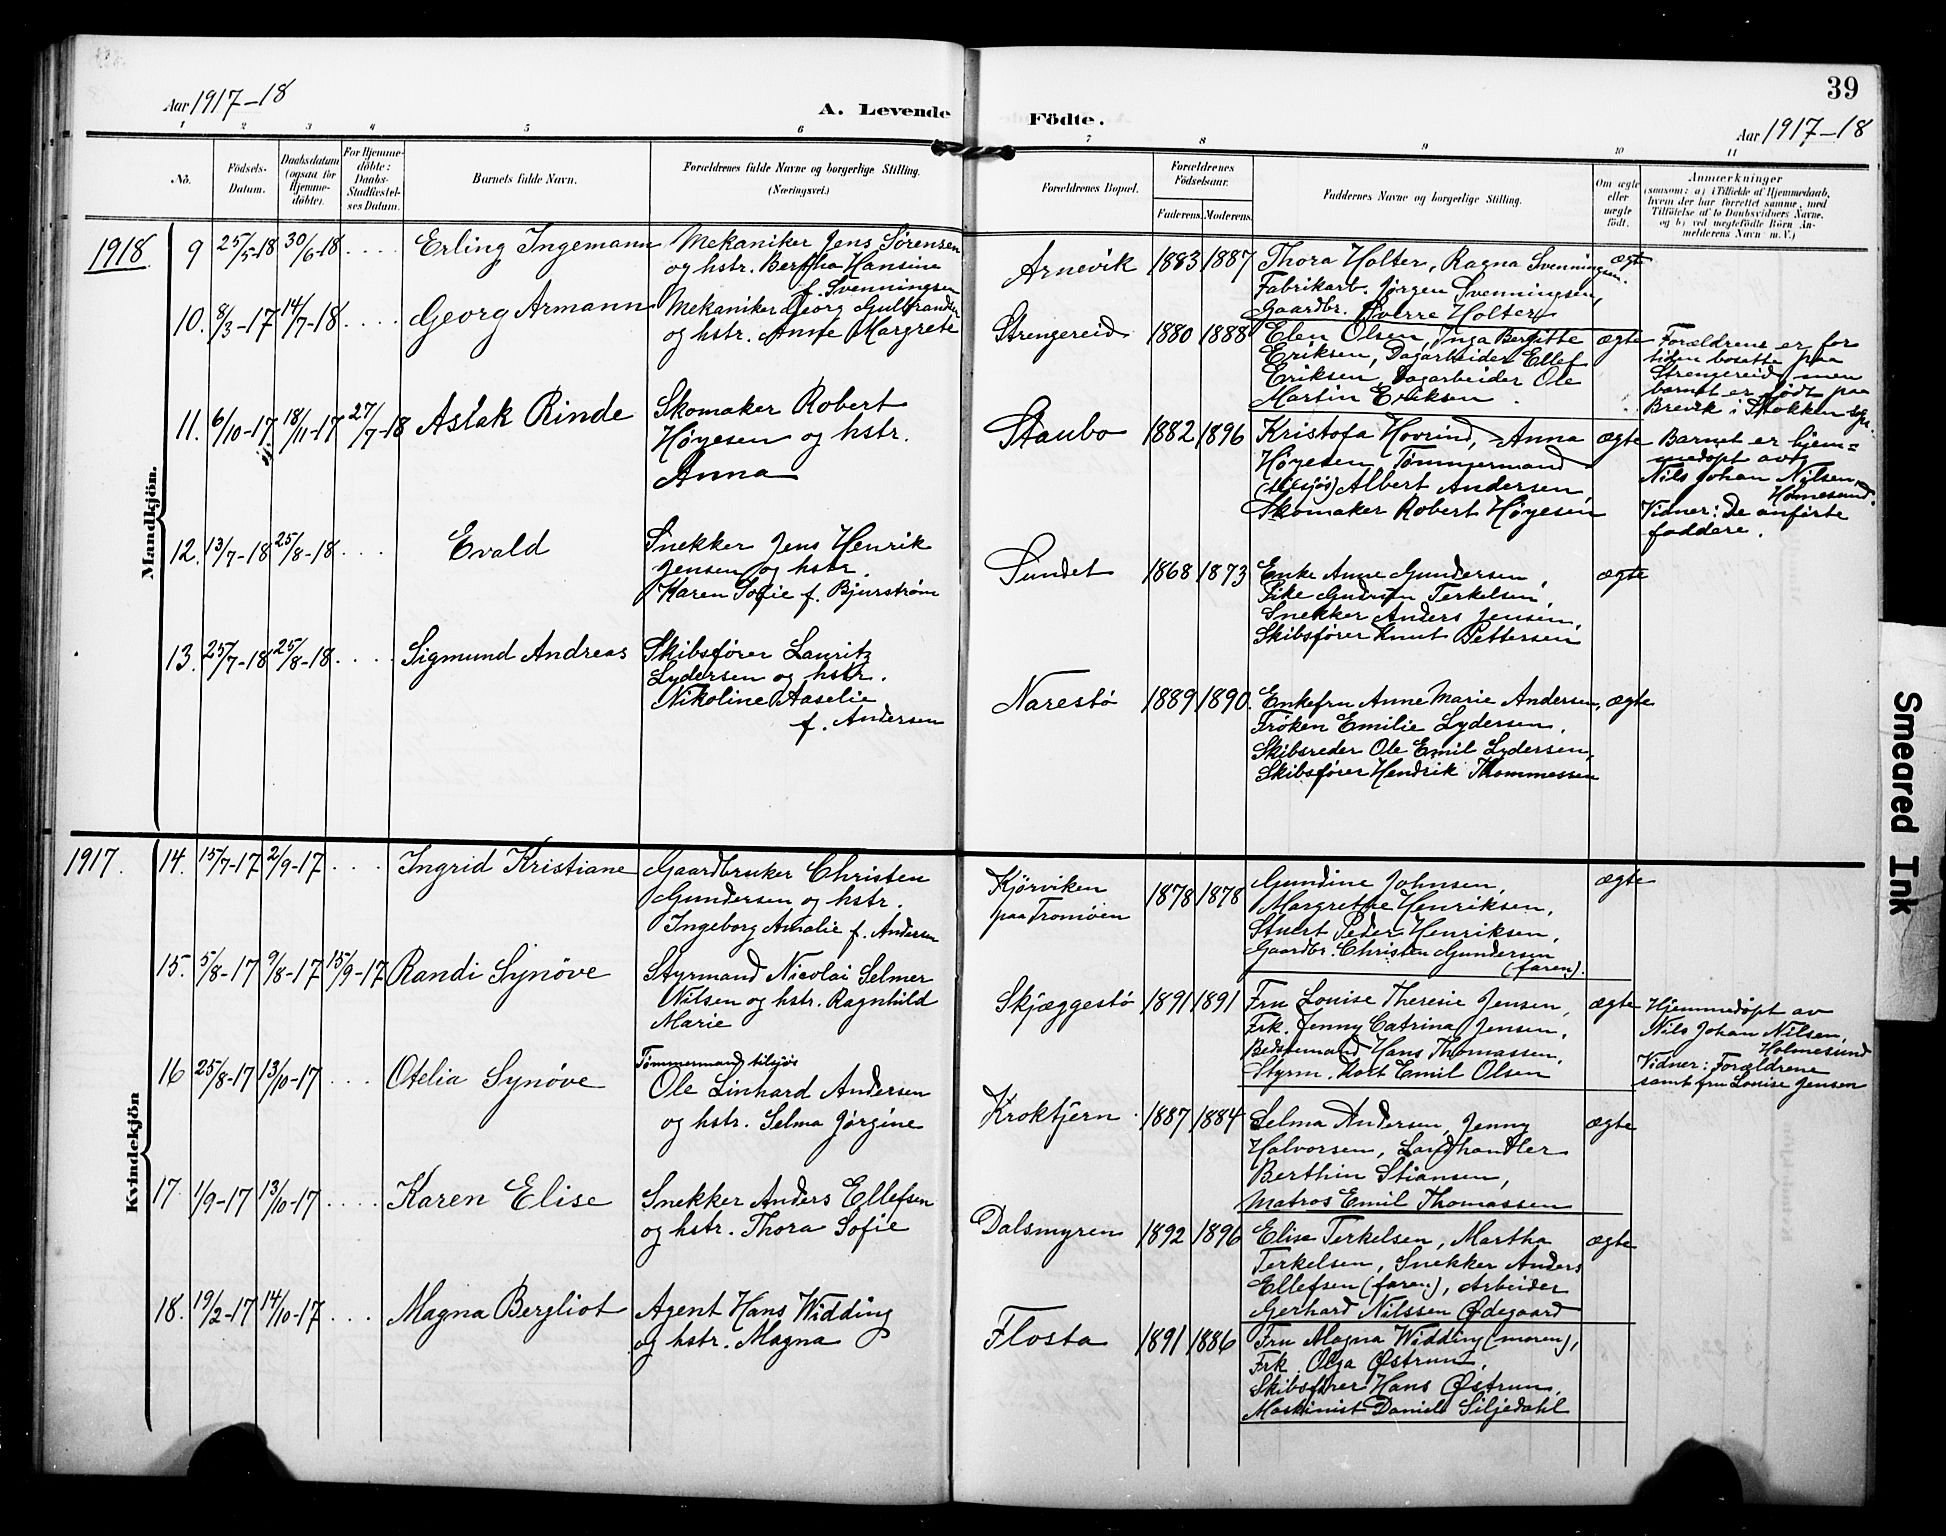 39
Aar 1917-18
A. Levende Födte.
Aar 1917-18
1 2 3 4 5 6 7 8 9 10 11
No.
Födsels-
Datum.
Daabsdatum
(ogsaa for
Hjemme-
døbte).
For Hjemme-
døbte:
Daabs-
Stadfæstel-
ses Datum.
Barnets fulde Navn.
Forældrenes fulde Navne og borgerlige Stilling.
(Næringsvei.)
Forældrenes Bopæl.
Forældrenes
Födselsaar.
Faderens. Moderens.
Faddernes Navne og borgerlige Stilling.
Om ægte
eller
uægte
født.
Anmærkninger
(saasom: a) i Tilfælde af Hjemmedaab,
hvem der har forrettet samme, med
Tilføielse af to Daabsvidners Navne.
og b) ved uægtefødte Børn An-
melderens Navn m. V.)
Mandkjön.
1918 9 25/5-18 30/6-18 .... Erling Ingemann
Mekaniker Jens Sørensen
og hstr. Bertha Hansine
f. Svenningsen
Arnevik 1883 1887
Thora Holter, Ragna Svenningsen.
Fabrikarb. Jørgen Svenningsen,
Gaardbr. Sverre Holter
ægte
10. 8/3-17 14/7-18 .... Georg Armann
Mekaniker Georg Gulbrandsen
og hstr. Anne Margrete
Strengereid 1880 1888
Elen Olsen, Inga Bergitte
Eriksen, Dagarbeider Ellef
Eriksen, Dagarbeider Ole
Martin Eriksen.
ægte
Forældrene er for
tiden bosatte paa
Strengereid, men
barnet er født paa
Brevik i Stokken sgn.
11. 6/10-17 18/11-17 27/7-18 Aslak Rinde
Skomaker Robert
Høyesen og hstr.
Anna
Staubo 1882 1896
Kristofa Hovrind, Anna
Høyesen, Tømmermand
(tilsjøs) Albert Andersen,
Skomaker Robert Høyesen
ægte
Barnet er hjem=
medøpt av
Nils Johan Nilsen,
Holmesund.
Vidner: De anførte
faddere.
12. 13/7-18 25/8-18 .... Evald
Snekker Jens Henrik
Jensen og hstr.
Karen Sofie f. Bjurstrøm
Sundet 1868 1873
Enke Anne Gundersen,
Pike Gudrun Terkelsen,
Snekker Anders Jensen,
Skibsfører Knut Pettersen
ægte
13. 25/7-18 25/8-18 .... Sigmund Andreas
Skibsfører Lauritz
Lydersen og hstr.
Nikoline Aaselie
f. Andersen
Narestø 1889 1890.
Enkefru Anne Marie Andersen,
Frøken Emilie Lydersen,
Skibsreder Ole Emil Lydersen,
Skibsfører Hendrik Thommessen
ægte
Kvindekjön
1917. 14. 15/7-17 2/9-17 .... Ingrid Kristiane
Gaardbruker Christen
Gundersen og hstr.
Ingeborg Amalie f. Andersen
Kjørviken
paa Tromøen
1878 1878
Gundine Johnsen,
Margrethe Henriksen,
Stuert Peder Henriksen,
Gaardbr. Christen Gundersen
(faren).
ægte
15. 5/8-17 9/8-17 15/9-17 Randi Synøve
Styrmand Nicolai Selmer
Nilsen og hstr. Ragnhild
Marie
Skjæggestø 1891 1891
Fru Louise Theresie Jensen,
Frk. Jenny Catrina Jensen,
Bedstemand Hans Thomassen,
Styrm. Kort Emil Olsen
ægte
Hjemmedøpt av
Nils Johan Nilsen,
Holmesund
Vidner: Forældrene
samt fru Louise Jensen
16 25/8-17 13/10-17 .... Otelia Synøve
Tømmermand tilsjøs
Ole Linhard Andersen
og hstr. Selma Jørgine
Kroktjern 1887 1884
Selma Andersen, Jenny
Halvorsen, Landhandler
Berthin Stiansen,
Matros Emil Thomassen
ægte
17. 1/9-17 13/10-17 .... Karen Elise
Snekker Anders Ellefsen
og hstr. Thora Sofie
Dalsmyren 1892 1896
Elise Terkelsen, Martha
Terkelsen, Snekker Anders
Ellefsen (faren), Arbeider
Gerhard Nilssen Ødegaard
ægte
18. 19/2-17 14/10-17 .... Magna Bergliot
Agent Hans Widding
og hstr. Magna
Flosta 1891 1886
Fru Magna Widding (moren),
Frk. Olga Østrum,
Skibsfører Hans Østrum,
Maskinist Daniel Siljedahl
Smeared Ink